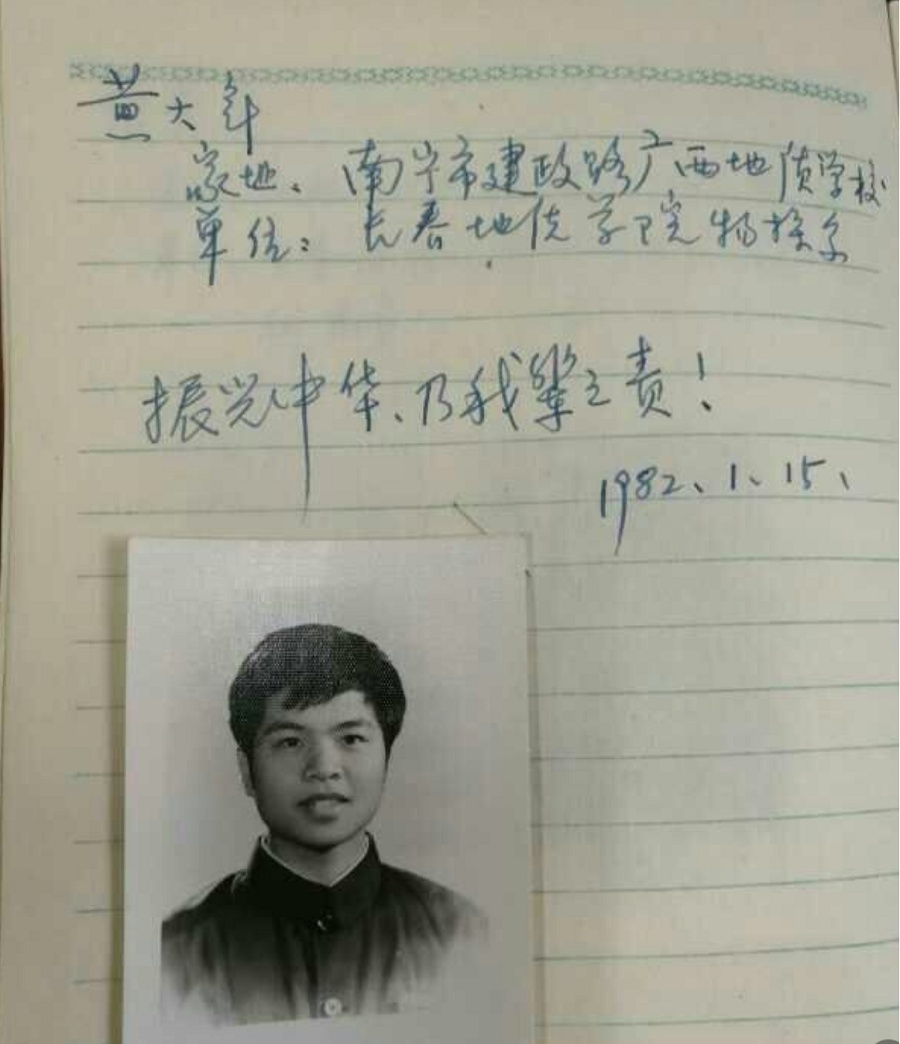 黄大年
家地、南宁市建政路广西地质学校
单位：长春地质学院物探系
振兴中华、乃我辈之责！
1982、1、15、